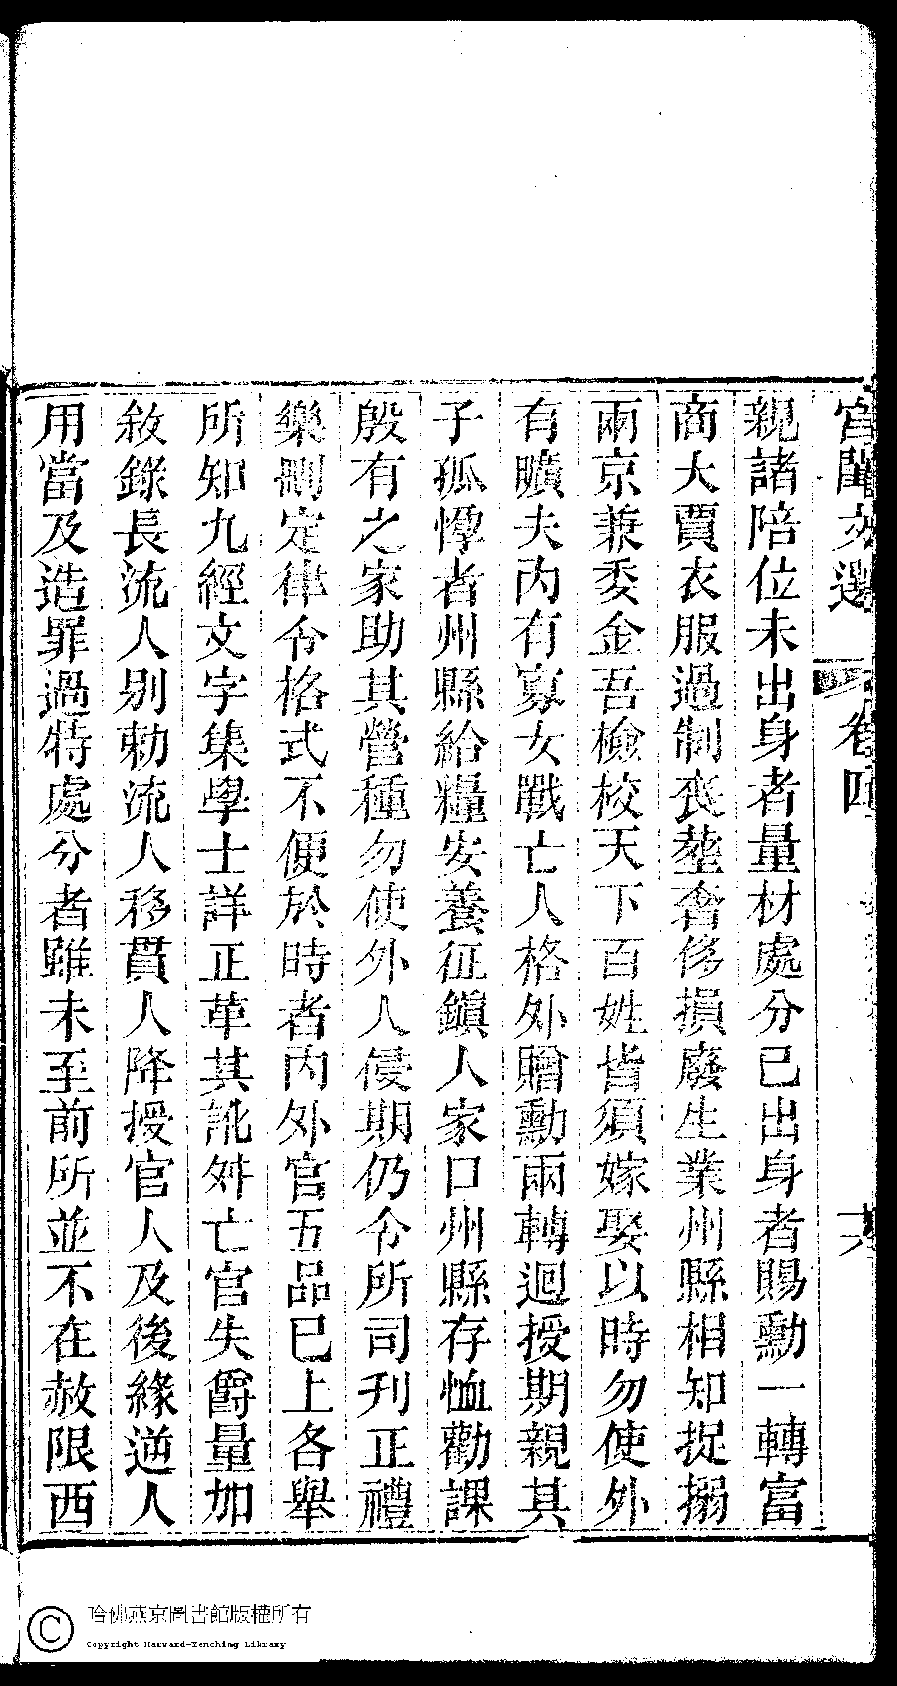 宮閨文選 卷四 十六
親諸陪位未出身者量材處分已出身者賜勳一轉富
商大賈衣服過制喪塟奢侈損廢生業州縣相知捉搦
兩京兼委金吾檢校天下百姓皆須嫁娶以時勿使外
有曠夫內有寡女戰亡人格外贈勳兩轉迴授期親其
子孤惸者州縣給糧安養征鎮人家口州縣存恤勸課
殷有之家助其營種勿使外人侵期仍令所司刊正禮
樂刪定律令格式不便於時者內外官五品已上各舉
所知九經文字集學士詳正革其訛舛亡官失爵量加
敘錄長流人別勅流人移貫人降授官人及後緣逆人
用當及造罪過特處分者雖未至前所並不在赦限西
哈佛燕京圖書館版權所有
Copyright Harvard-Yenching Library